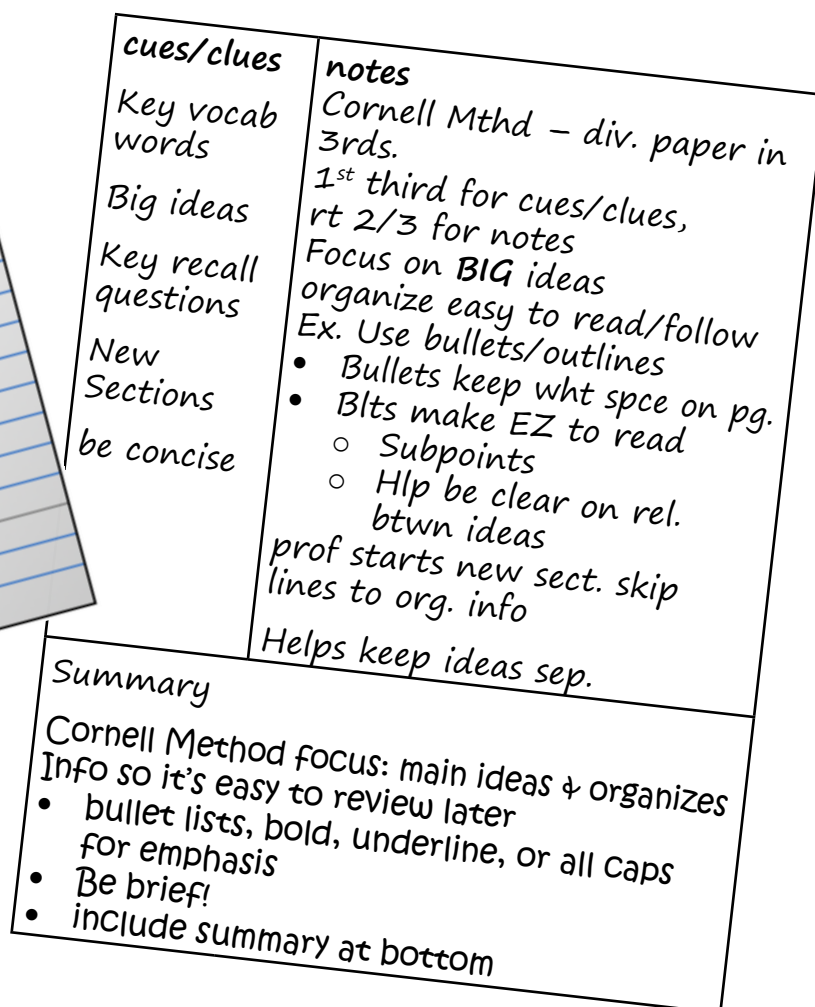 cues/clues
Key vocab
words
Big ideas
Key recall
questions
New
Sections
be concise
notes
Cornell Mthd – div. paper in
3rds.
1st third for cues/clues,
rt 2/3 for notes
Focus on BIG ideas
organize easy to read/follow
Ex. Use bullets/outlines
• Bullets keep wht spce on pg.
• Blts make EZ to read
○ Subpoints
○ Hlp be clear on rel.
btwn ideas
prof starts new sect. skip
lines to org. info
Helps keep ideas sep.
Summary
Cornell Method focus: main ideas & organizes
Info so it's easy to review later
• bullet lists, bold, underline, or all caps
for emphasis
• Be brief!
• include summary at bottom